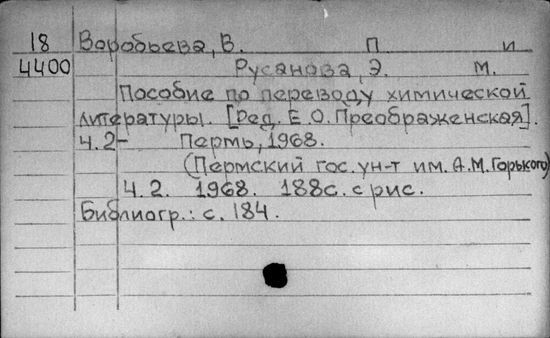 18 Воробьева, В. П. и
4400 Русанова, Э. М.
Пособие по переводу химической
литературы. [Ред. Е. О. Преображенская].
Ч. 2- Пермь, 1968.
(Пермский гос. ун-т им. А. М. Горького)
Ч. 2. 1968. 188с. с рис.
Библиогр.: с. 184.